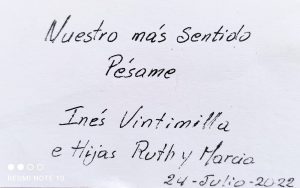 Nuestro más Sentido
Pésame
Inés Vintimilla
e Hijas Ruth y Marcia
24-Julio-2022
REDMI NOTE 10